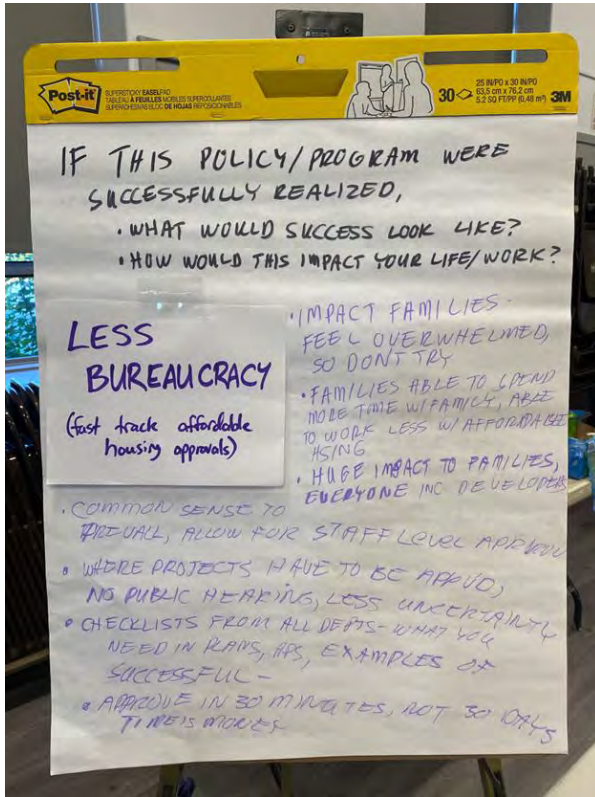 Post-it
SUPERSTICKY EASEL PAD
TABLEAU À FEUILLES MOBILES SUPERCOLLANTES
SUPERADHESIVAS BLOC DE HOJAS REPOSICIONABLES
30
25 IN/PO x 30 IN/PO
63,5 cm x 76,2 cm
5.2 SQ FT/PP (0,48 m²)
3M
IF THIS POLICY/PROGRAM WERE
SUCCESSFULLY REALIZED,
• WHAT WOULD SUCCESS LOOK LIKE?
• HOW WOULD THIS IMPACT YOUR LIFE/WORK?
LESS
BUREAUCRACY
(fast track affordable
housing approvals)
• IMPACT FAMILIES -
FEEL OVERWHELMED,
SO DONT TRY
• FAMILIES ABLE TO SPEND
MORE TIME W/FAMILY, ABLE
TO WORK LESS W/ AFFORDABLE
HSING
• HUGE IMPACT TO FAMILIES,
EVERYONE INC DEVELOPERS
• COMMON SENSE TO
PREVAIL, ALLOW FOR STAFF LEVEL APPROV
• WHERE PROJECTS HAVE TO BE APPVD,
NO PUBLIC HEARING, LESS UNCERTAINTY
• CHECKLISTS FROM ALL DEPTS - WHAT YOU
NEED IN PLANS, APS, EXAMPLES OF
SUCCESSFUL -
• APPROVE IN 30 MINUTES, NOT 30 DAYS
TIME IS MONEY